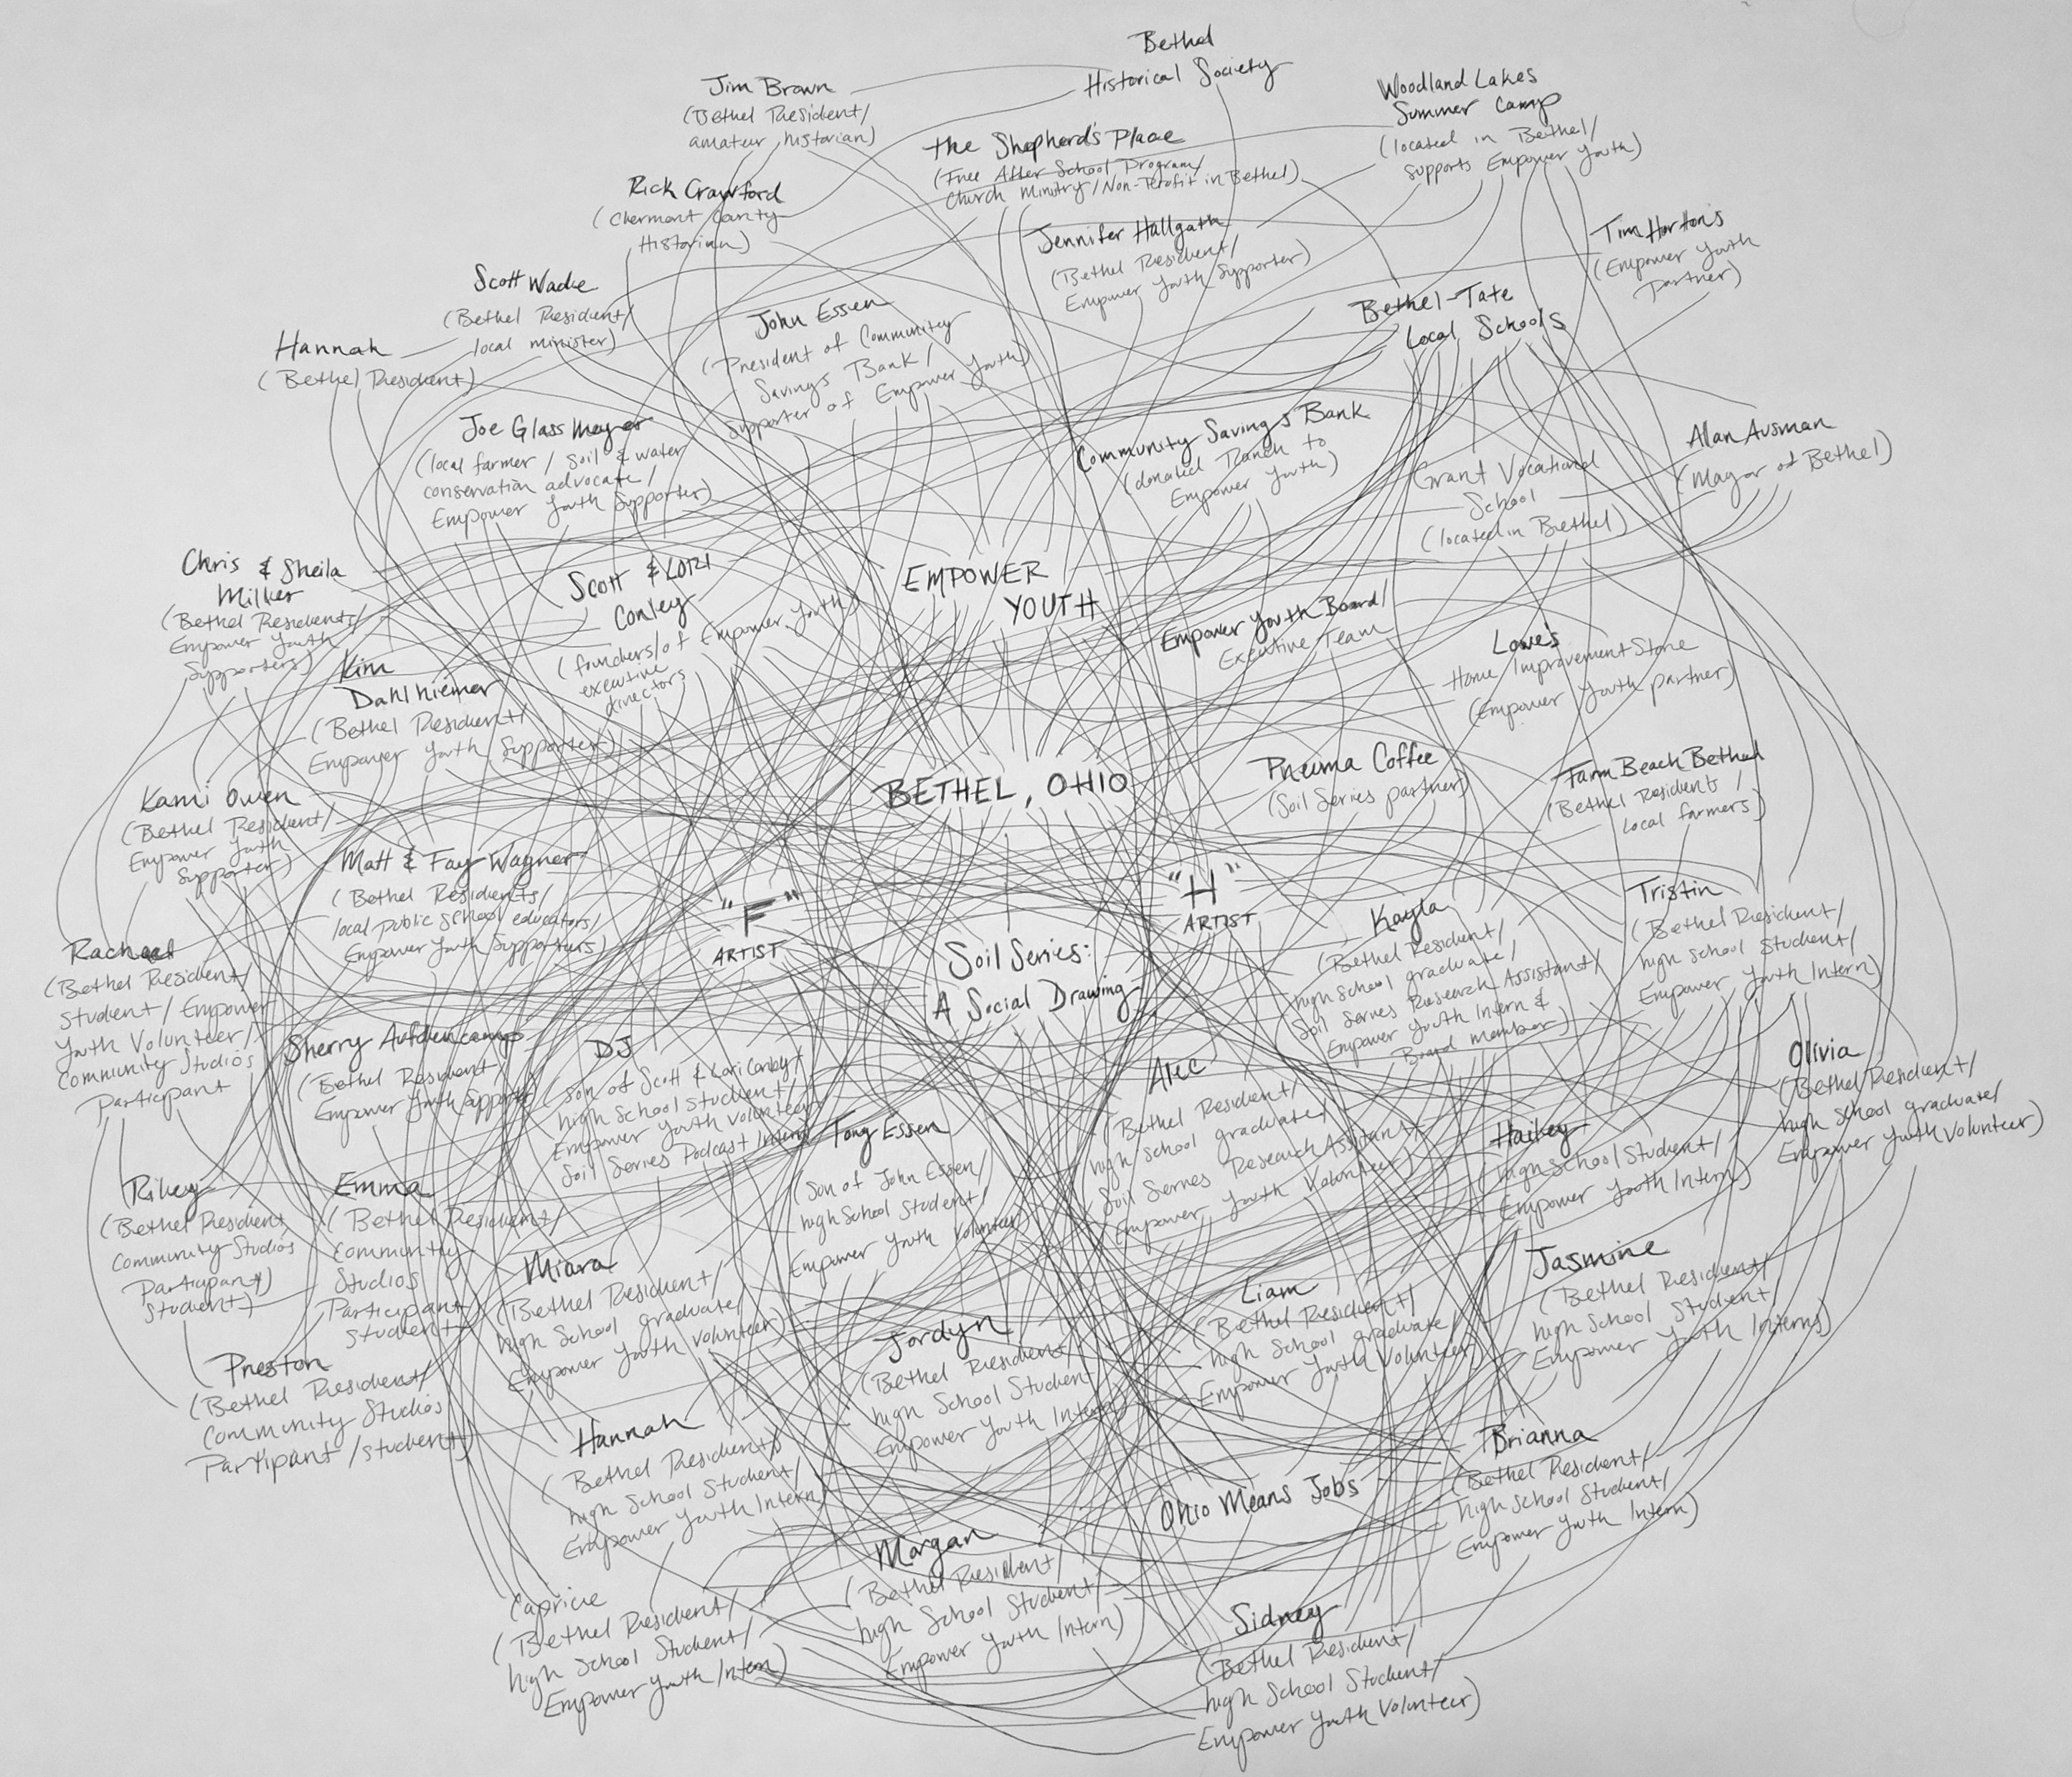 Bethel
Historical Society
Jim Brown
(Bethel Resident/
amateur historian)
Woodland Lakes
Summer Camp
(located in Bethel/
supports Empower Youth)
the Shepherd's Place
(Free After School Program/
Church Ministry/Non-Profit in Bethel)
Rick Crawford
(Clermont County
Historian)
Jennifer Hallgath
(Bethel Resident/
Empower Youth Supporter)
Tim Horton's
(Empower Youth
Partner)
Scott Wade
(Bethel Resident/
local minister)
Hannah
(Bethel Resident)
John Essen
(President of Community
Savings Bank/
supporter of Empower Youth)
Bethel-Tate
Local Schools
Joe Glassmeyer
(local farmer / soil & water
conservation advocate/
Empower Youth Supporter)
Community Savings Bank
(donated Ranch to
Empower Youth)
Grant Vocational
School
(located in Bethel)
Alan Ausman
(Mayor of Bethel)
Chris & Sheila
Miller
(Bethel Residents/
Empower Youth
Supporters)
Scott & LORI
Conley
(founders/of Empower Youth
executive
directors
EMPOWER
YOUTH
Empower Youth Board/
Executive Team
Lowe's
Home Improvement Store
(Empower Youth partner)
Kim
Dahlhiemer
(Bethel Resident/
Empower Youth Supporter)
BETHEL, OHIO
Pneuma Coffee
(Soil Series partner)
Farm Beach Bethel
(Bethel Residents/
local farmers)
Kami Owen
(Bethel Resident/
Empower Youth
Supporter)
Matt & Fay Wagner
(Bethel Residents/
local public school educators/
Empower Youth Supporters)
"F"
ARTIST
"H"
ARTIST
Soil Series:
A Social Drawing
Kayla
(Bethel Resident/
high school graduate/
Soil Series Research Assistant/
Empower Youth Intern &
Board member)
Tristin
(Bethel Resident/
high school Student/
Empower Youth Intern)
Rachael
(Bethel Resident/
Student/Empower
Youth Volunteer/
Community Studios
Participant
Sherry Aufdencamp
(Bethel Resident/
Empower Youth supporter)
DJ
(son of Scott & Lori Conley/
high school student/
Empower Youth Volunteer/
Soil Series Podcast Intern)
Tony Essen
(Son of John Essen/
high School Student/
Empower Youth Volunteer)
Alec
(Bethel Resident/
high school graduate/
Soil Series Research Assistant
Empower Youth Volunteer)
Hailey
(high School Student/
Empower Youth Intern)
Olivia
(Bethel Resident/
high school graduate/
Empower Youth Volunteer)
Riley
(Bethel Resident
Community Studios
Participant)
Student)
Emma
(Bethel Resident/
Community
Studios
Participant)
Student
Miara
(Bethel Resident/
high School graduate/
Empower Youth Volunteer)
Jordyn
(Bethel Resident
high School Student
Empower Youth Intern)
Liam
(Bethel Resident/
high School graduate/
Empower Youth Volunteer)
Jasmine
(Bethel Resident/
high School Student
Empower Youth Interns)
Preston
(Bethel Resident/
Community Studios
Participant/student)
Hannah
(Bethel Resident/
high School Student/
Empower Youth Intern)
Ohio Means Jobs
Brianna
(Bethel Resident/
high School Student/
Empower Youth Intern)
Morgan
(Bethel Resident/
high School Student/
Empower Youth Intern)
Capricie
(Bethel Resident/
high School Student/
Empower Youth Intern)
Sidney
(Bethel Resident/
high School Student/
Empower Youth Volunteer)